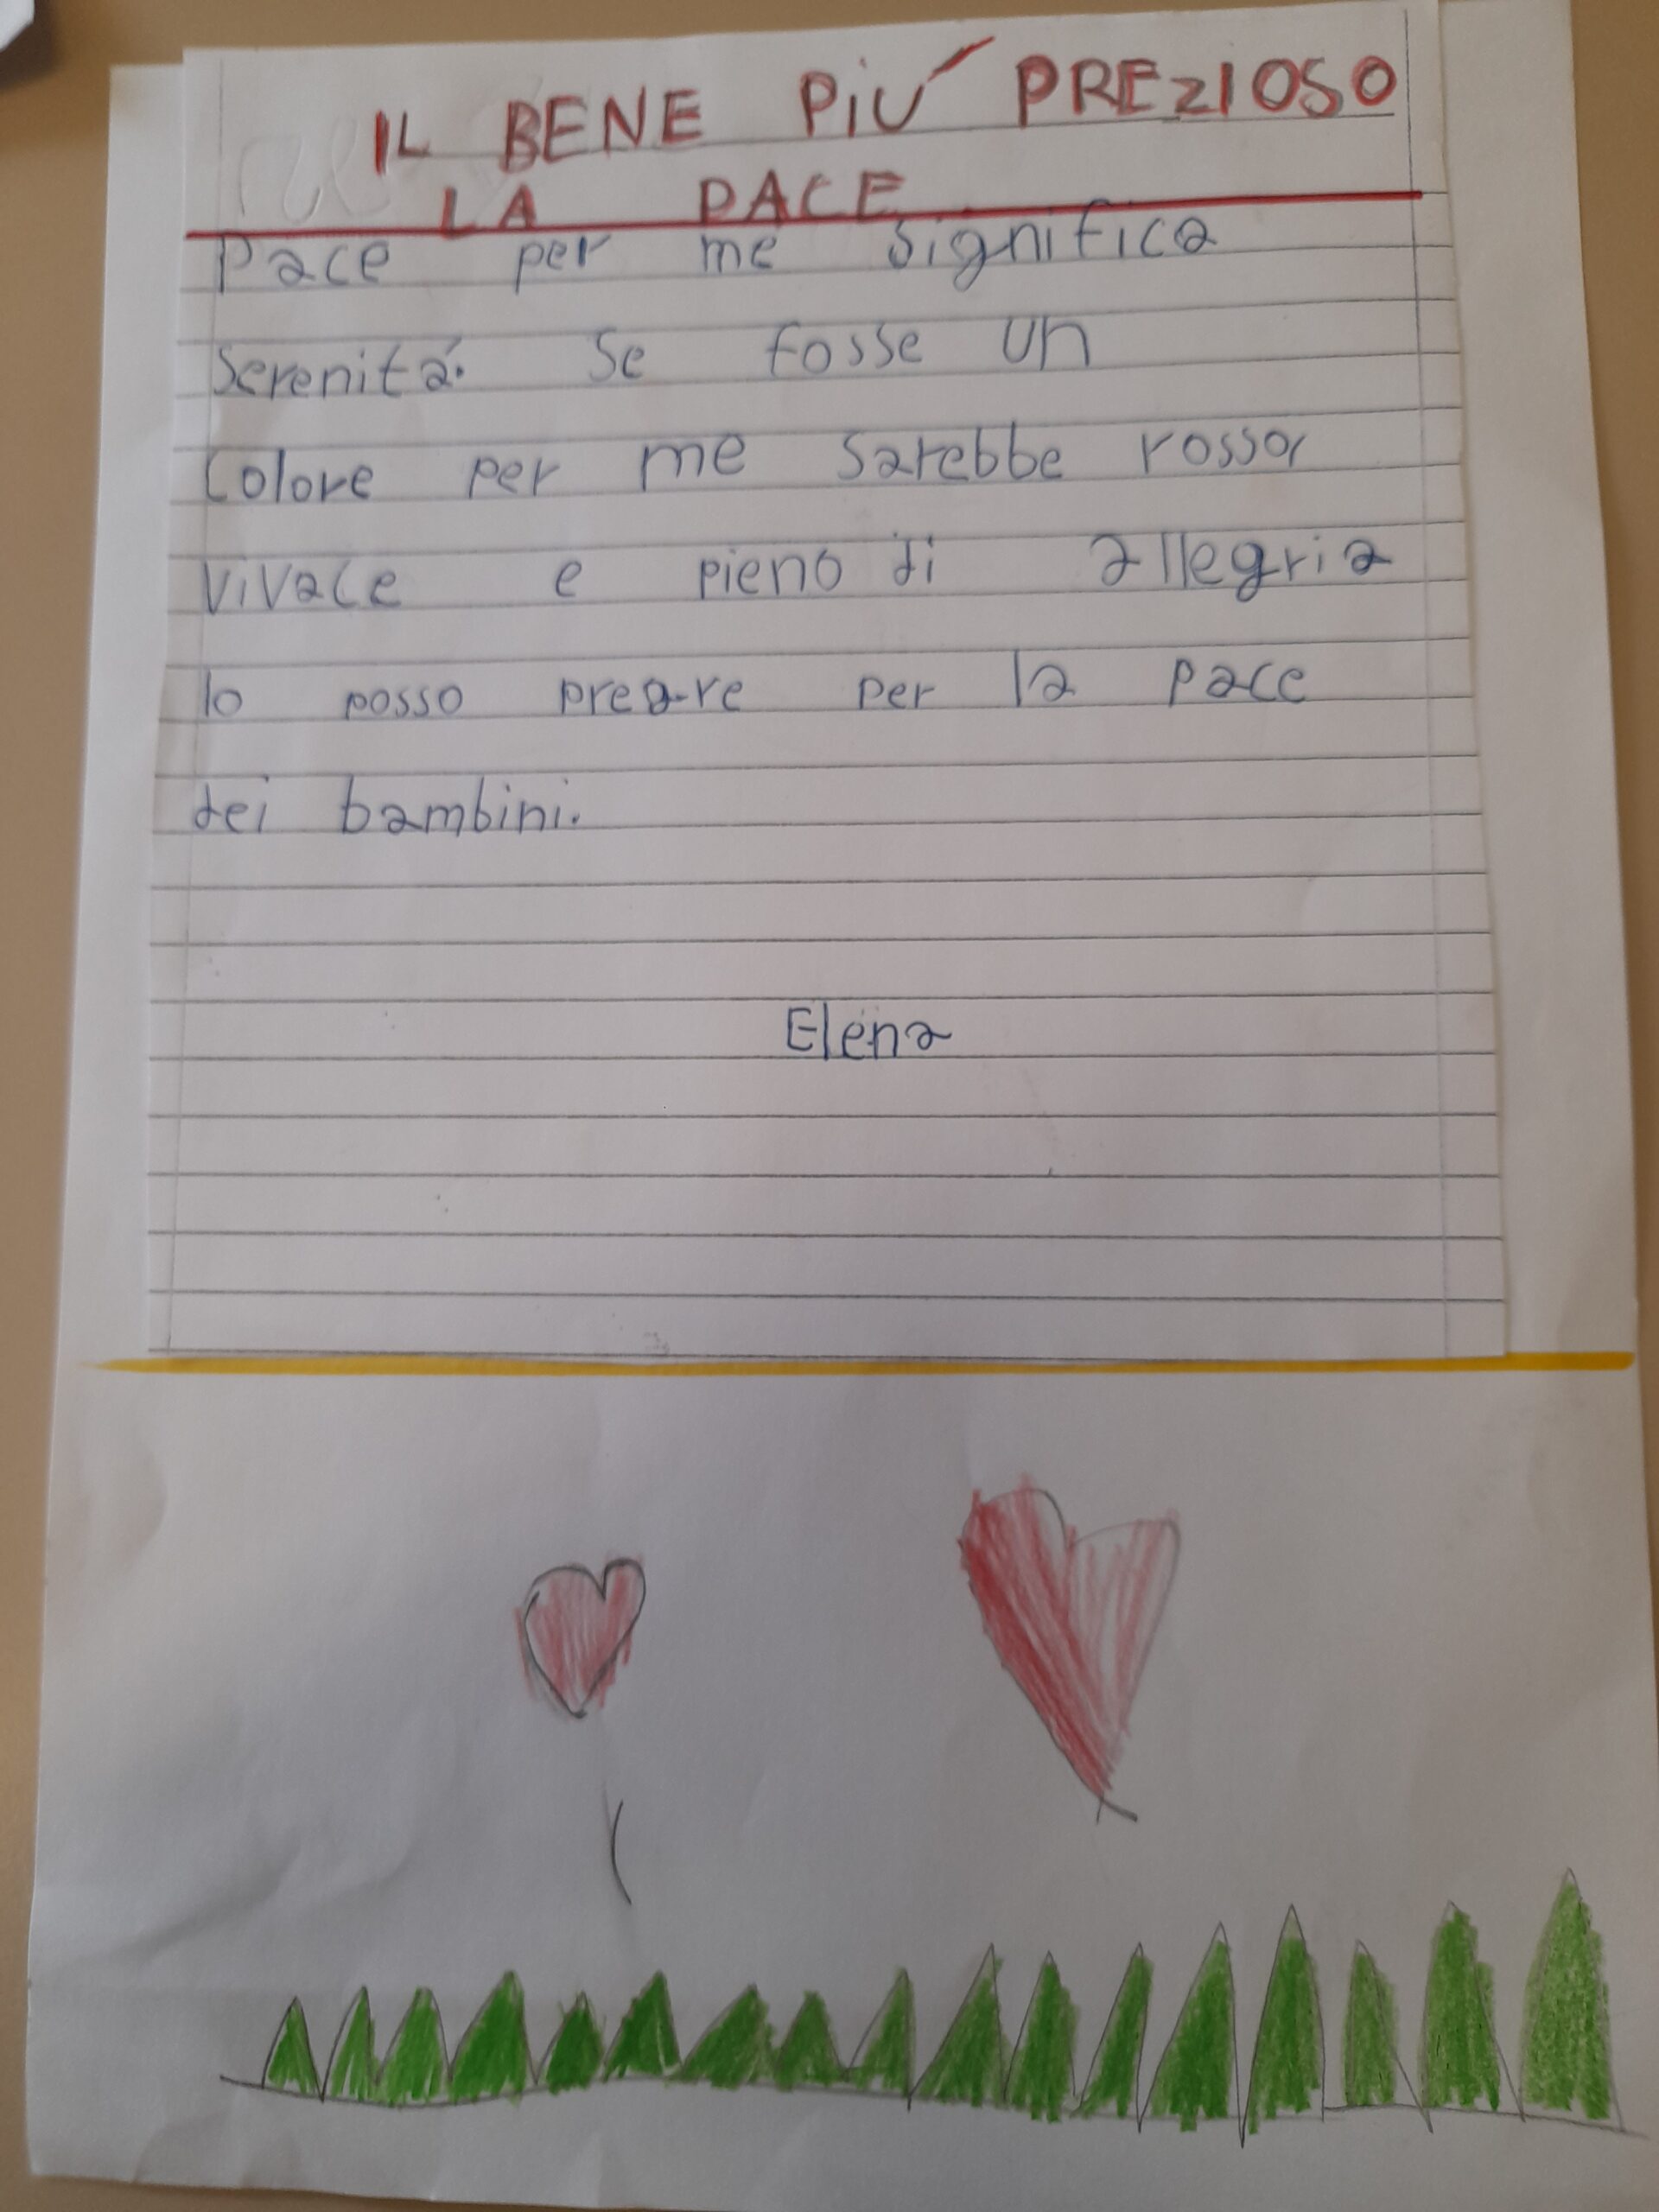 IL BENE PIÚ PREZIOSO
LA PACE
Pace per me significa
Serenitá. Se fosse un
Colore per me sarebbe rosso,
vivace e pieno di allegria
Io posso preare per la pace
dei bambini.
Elena